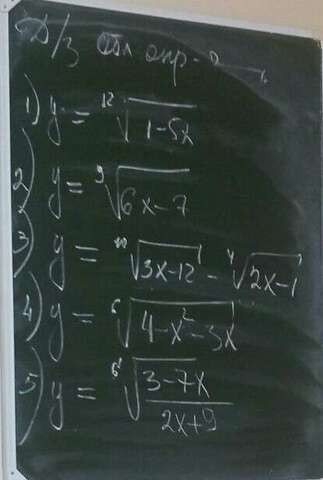 Д/з Обл опр-я
1) y = ¹²√(1-5x)
2) y = ⁹√(6x-7)
3) y = ¹⁰√(3x-12) - ⁴√(2x-1)
4) y = ⁶√(4-x²-3x)
5) y = ⁶√((3-7x)/(2x+9))